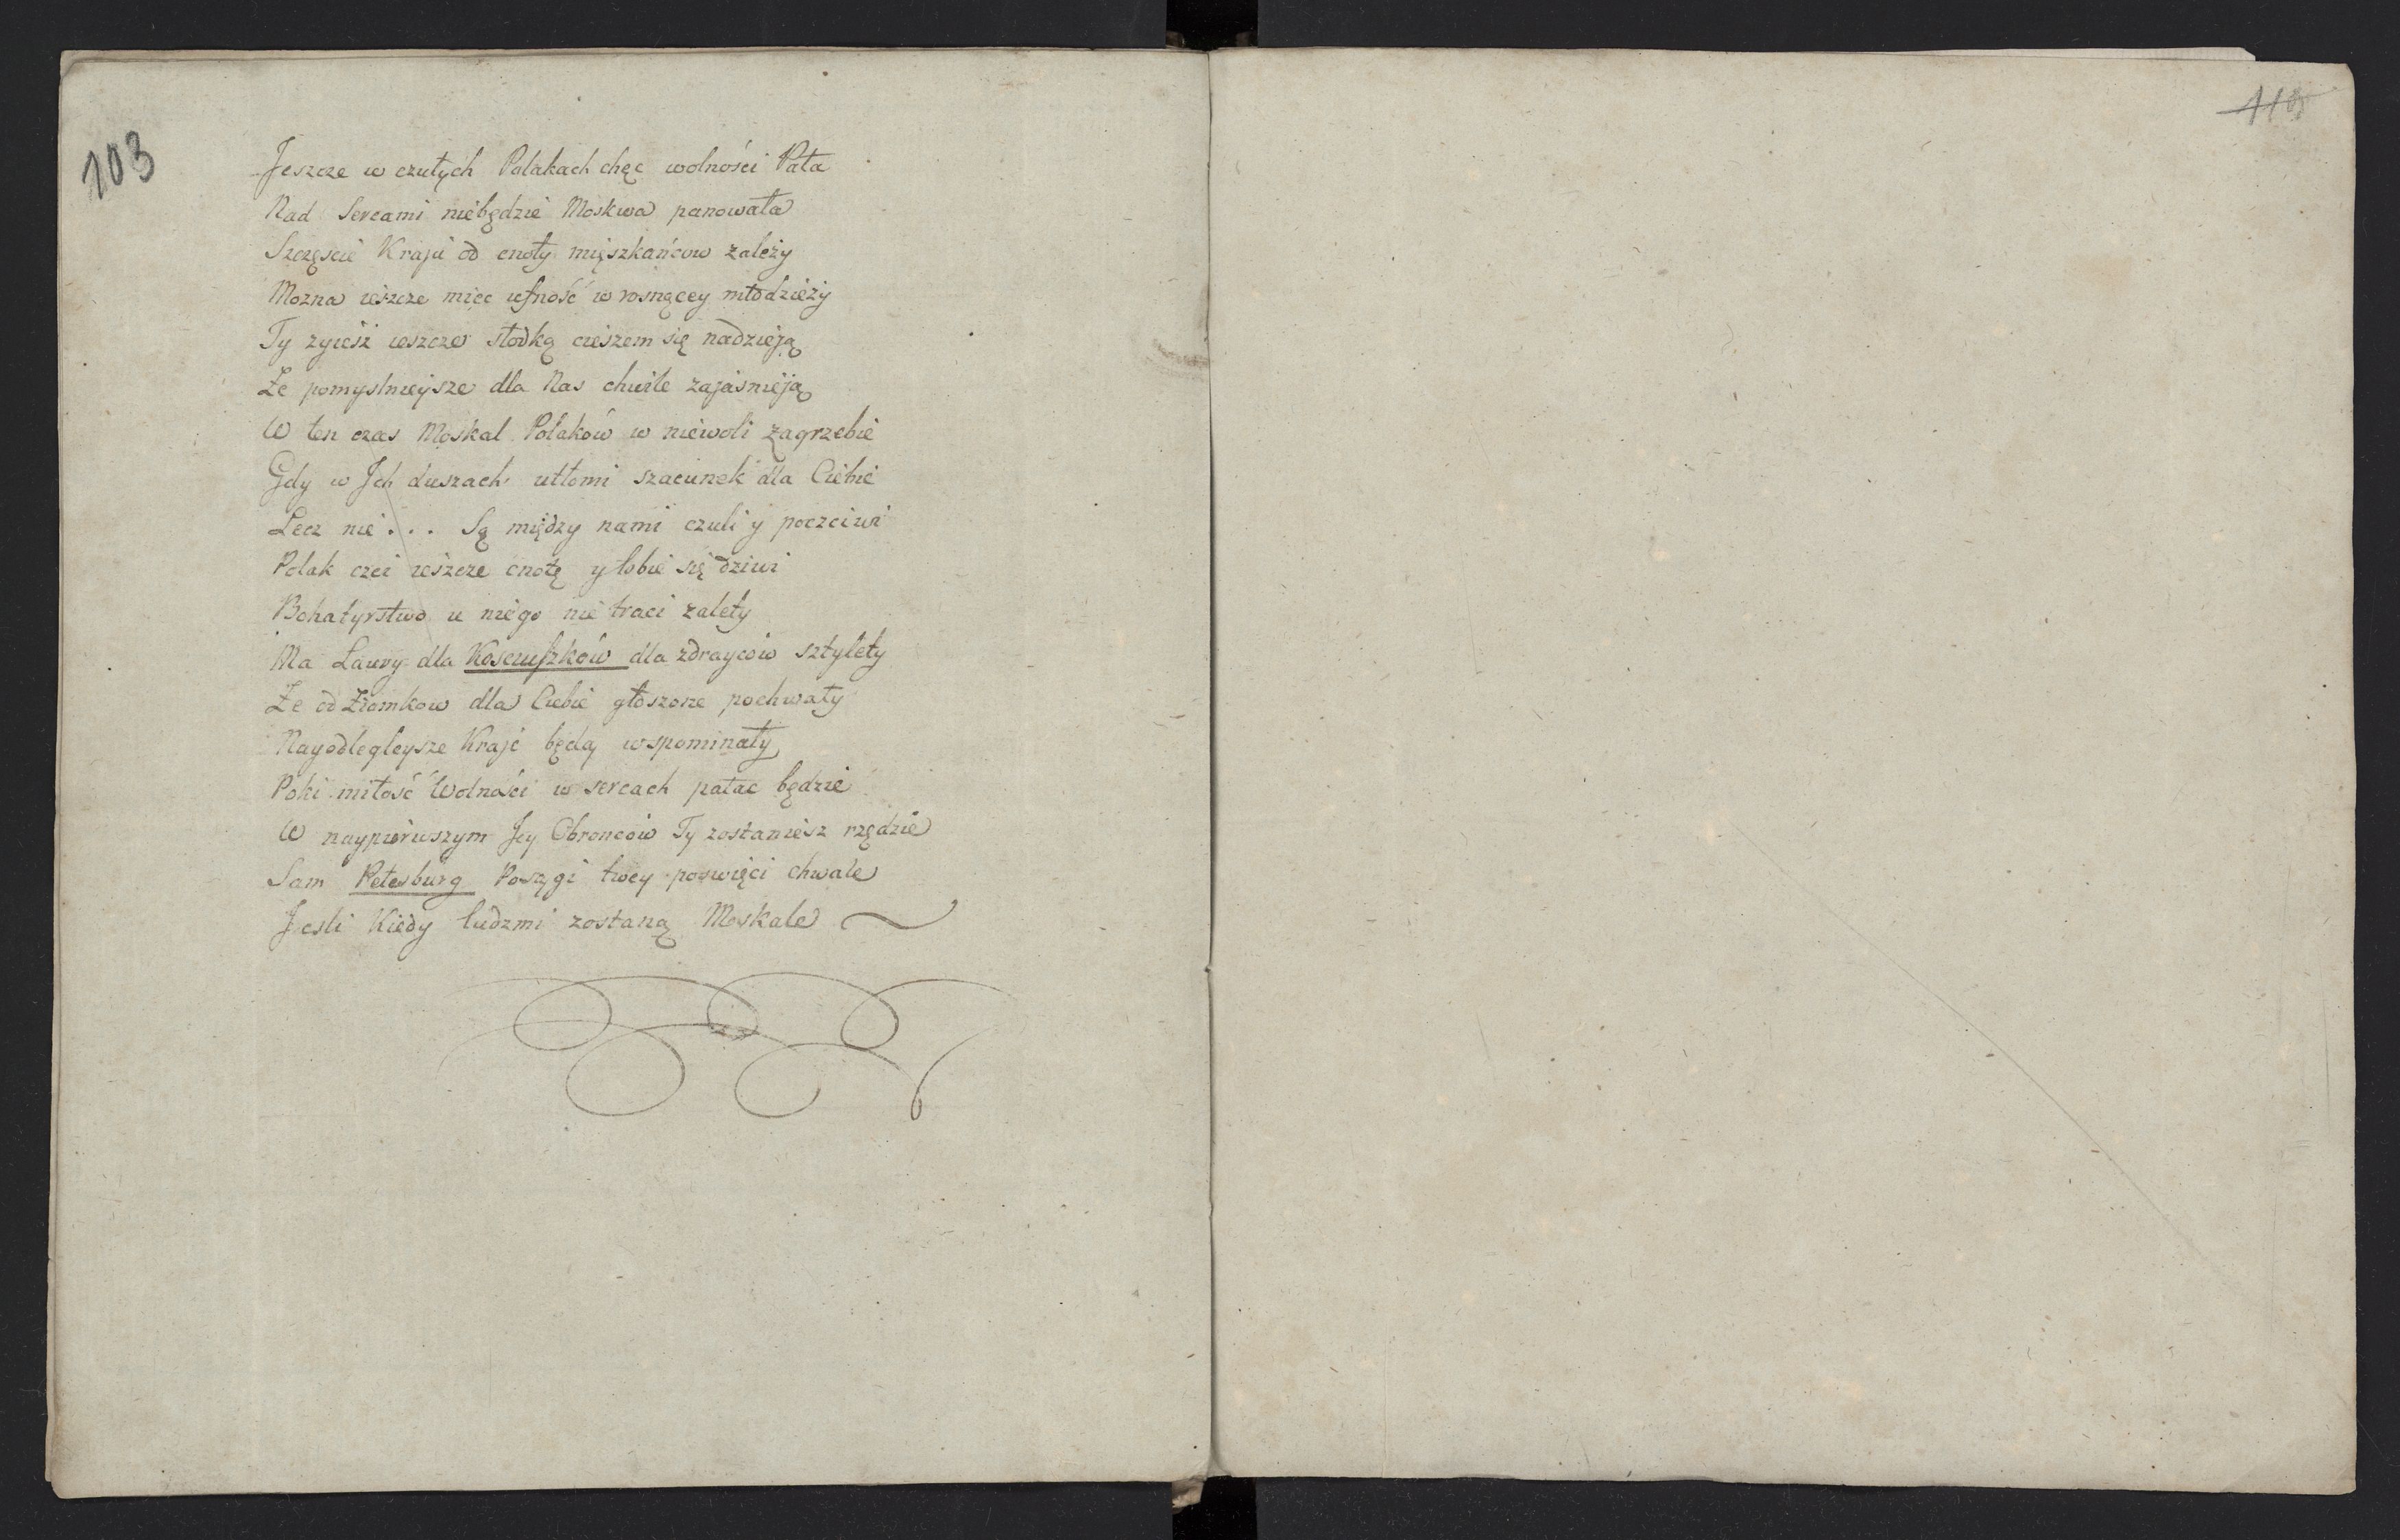 103
Jeszcze w czułych Polakach chęc wolności Pała
Nad Sercami niebędzie Moskwa panowała
Szczęscie Kraju od cnoty mięszkańcow zależy
Mozna ieszcze miec ufność w rosnącey młodzieży
Ty zyiesz ieszcze słodką cieszem się nadzieją
Że pomyslnieysze dla Nas chwile zajasnieją
W ten czas Moskal Polaków w niewoli zagrzebie
Gdy w Jch duszach utłomi szacunek dla Ciebie
Lecz nie... Są między nami czuli y poczciwi
Polak czci ieszcze cnotę y tobie się dziwi
Bohatyrstwo u niego nie traci zalety
Ma Laury dla Kosciuszków dla zdraycow sztylety
Że od Ziomkow dla Ciebie głoszone pochwały
Nayodlegleysze Kraje będą wspominały
Poki miłość Wolności w sercach pałac będzie
W naypierwszym Jey Obroncow Ty zostaniesz rzędzie
Sam Petesburg Posągi twey poswięci chwale
Jesli Kiedy ludzmi zostaną Moskale